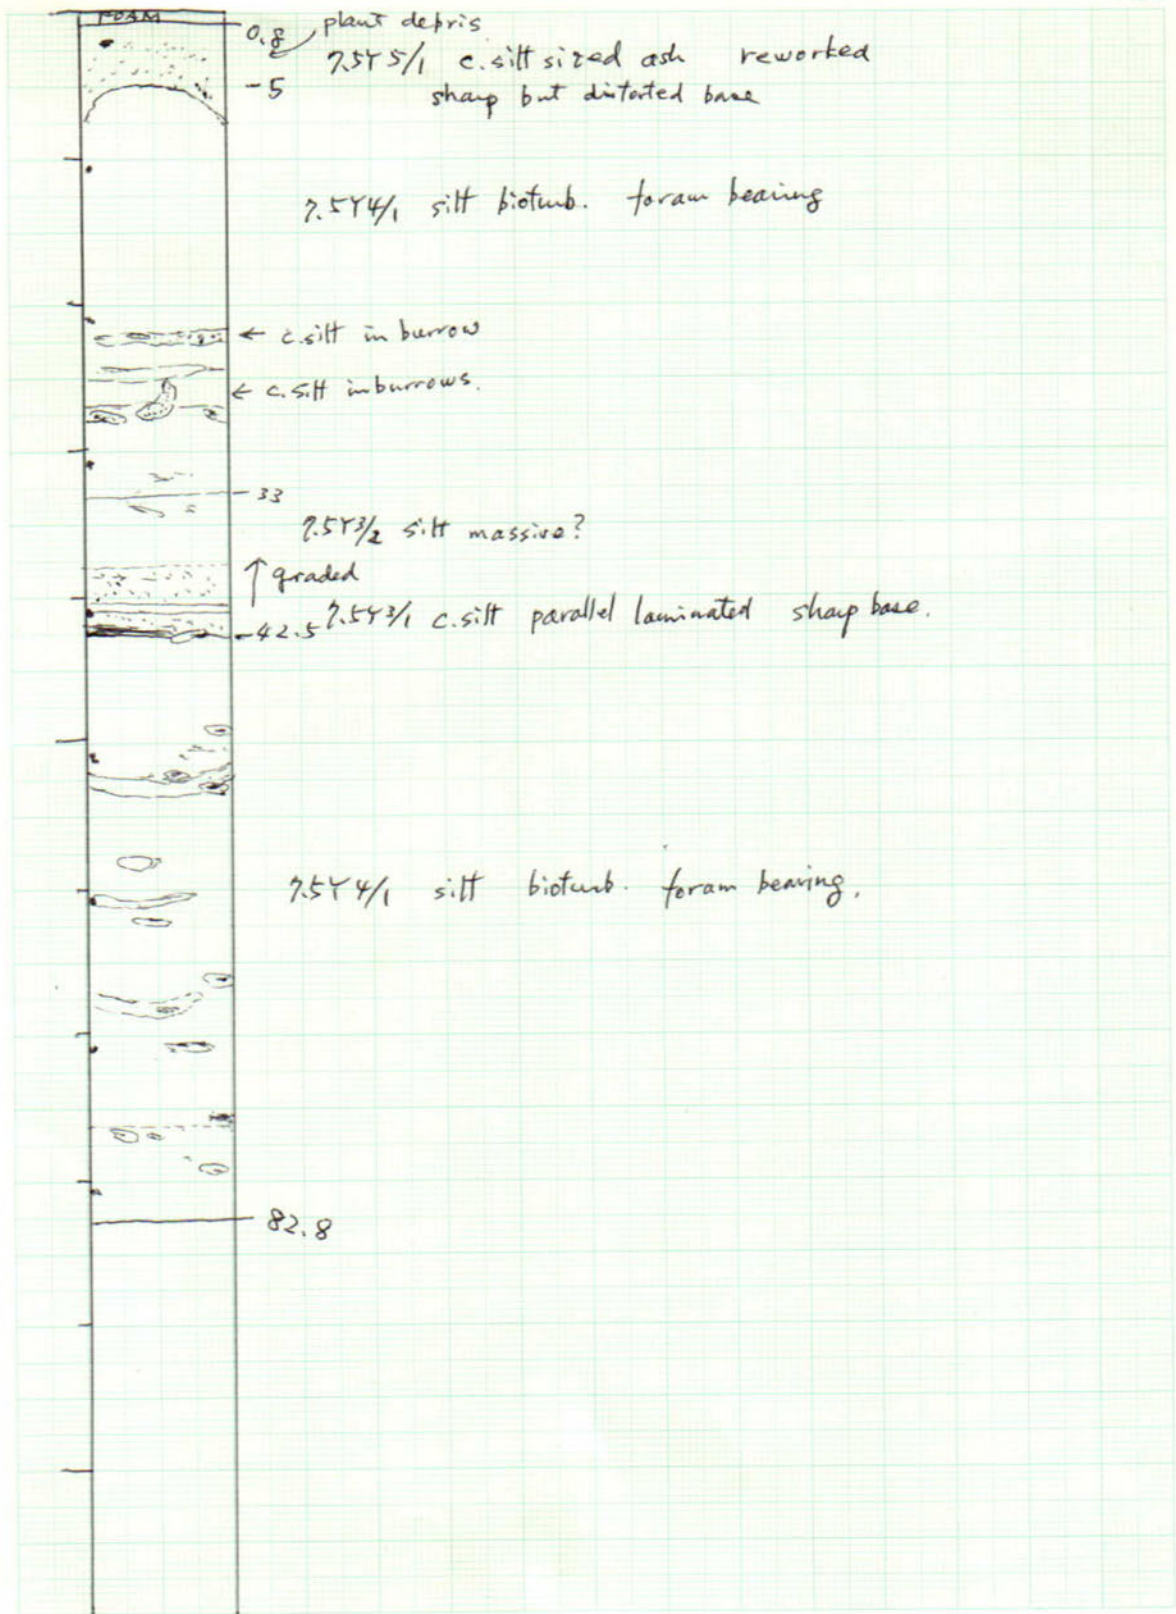 FOAM
0.8 plant debris
7.5Y 5/1 c.silt sized ash reworked
-5 sharp but distorted base
7.5Y4/1 silt bioturb. foram bearing
← c.silt in burrow
← c.silt in burrows.
-33
7.5Y3/2 silt massive?
↑ graded
-42.5 7.5Y3/1 c.silt parallel laminated sharp base.
7.5Y 4/1 silt bioturb. foram bearing.
82.8